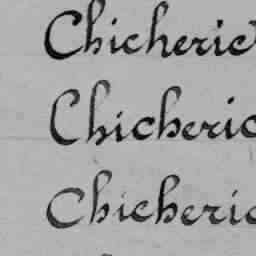 Chicherie
Chicheric
Chicheric